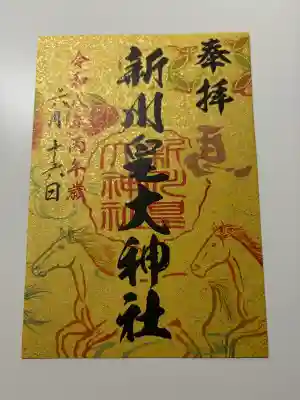 奉拝
新川皇大神社
新川皇大神社
令和八年丙午歳
六月十六日